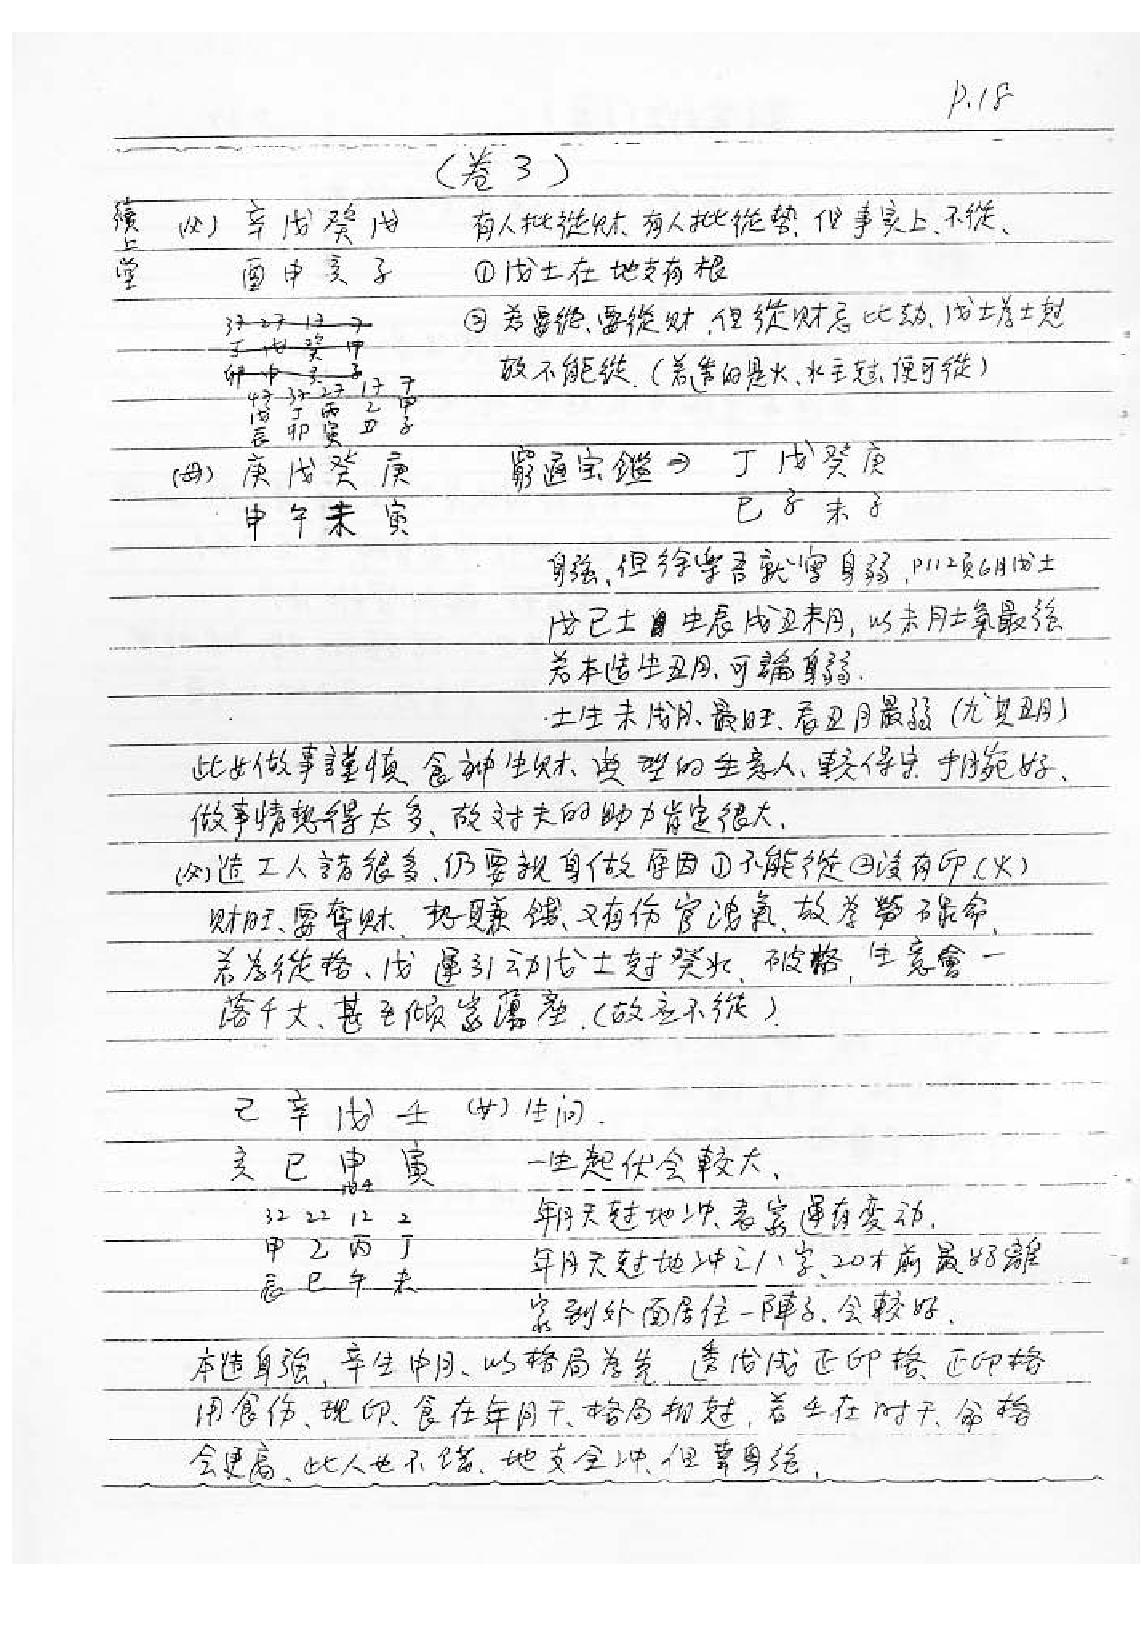 P.18
(卷3)
續上堂
(女) 辛戊癸戊 有人批從財、有人批從勢、但事实上、不從、
酉申亥子 ①戊土在地支有根
37 27 17 7 ②若要從、要從财、但從财忌比劫、戊土為土尅
丁戊癸甲
卯申亥子 故不能從、(若遇的是火、水去尅、便可從)
47 37 27 17 7
戊丁丙乙甲
辰卯寅丑子
(母) 庚戊癸庚 窮通宝鑑⇒ 丁戊癸庚
申午未寅 巳子未子
身強、但徐樂吾就當身弱、P112頁6月戊土
戊己土生辰戌丑未月、以未月土氣最強
若本造生丑月、可論身弱.
土生未戌月、最旺、辰丑月最弱(尤其丑月)
此女做事謹慎、食神生财、典型的生意人、較保守、手腕好、
做事情想得太多、故对夫的助力肯定很大、
(女)造工人請很多、仍要親身做、原因①不能從②沒有印(火)
财旺、要奪财、想賺錢、又有伤官洩氣、故為勞碌命、
若為從格、戊運引动戊土尅癸水、破格、生意會一
落千丈、甚至傾家蕩産、(故並不從)
己辛戊壬 (女) 生间.
亥巳申寅 一生起伏会較大、
32 22 12 2 年月天尅地冲、表家運有変动、
甲乙丙丁 年月天尅地冲之八字、20才前最好離
辰巳午未 家到外面居住一陣子、会較好、
本造身強、辛生申月、以格局為先、透戊成正印格、正印格
用食伤、现印、食在年月干、格局相尅、若壬在时干、命格
会更高、此人也不錯、地支全冲、但靠身強、